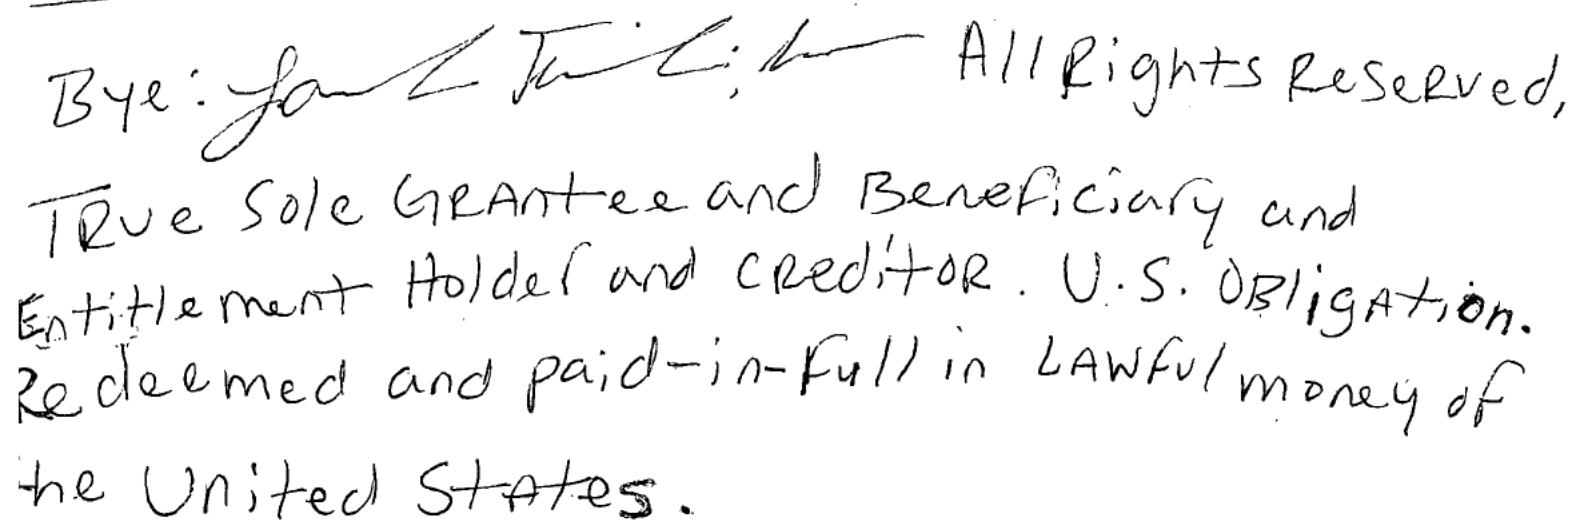 Bye: All Rights Reserved,
True Sole Grantee and Beneficiary and
Entitlement Holder and Creditor. U.S. Obligation.
Redeemed and paid-in-full in Lawful money of
the United States.